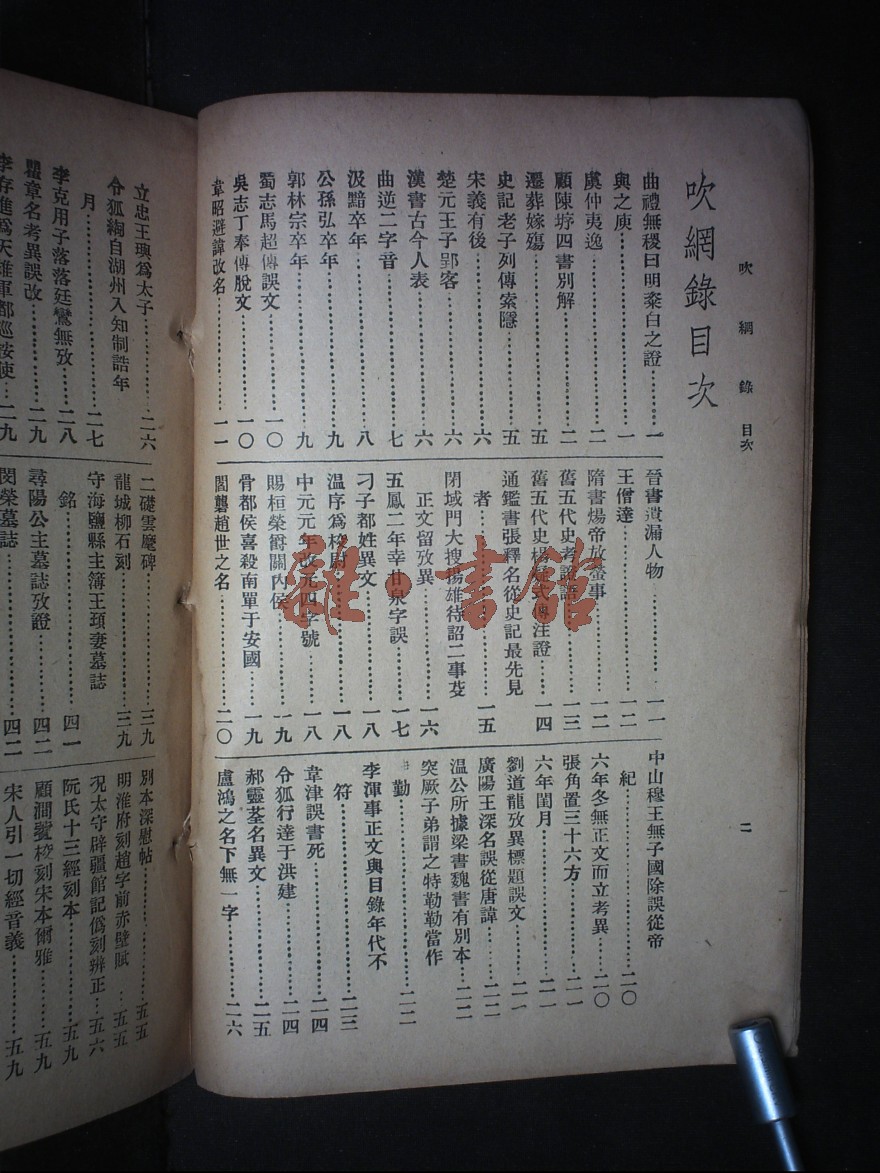 吹網錄 目次
二
吹網錄目次
曲禮無稷曰明粢白之證……一
與之庾……一
虞仲夷逸……二
顧陳垿四書別解……二
遷葬嫁殤……五
史記老子列傳索隱……五
宋義有後……六
楚元王子郢客……六
漢書古今人表……六
曲逆二字音……七
汲黯卒年……八
公孫弘卒年……九
郭林宗卒年……九
蜀志馬超傳誤文……一〇
吳志丁奉傳脫文……一〇
韋昭避諱改名……一一
晉書遺漏人物……一一
王僧達……一二
隋書煬帝放螢事……一二
舊五代史考證語……一三
舊五代史楊凝式傳注證……一四
通鑑書張釋名從史記最先見
者……一五
閉城門大搜揚雄待詔二事茇
正文留攷異……一六
五鳳二年幸甘泉字誤……一七
刁子都姓異文……一八
温序爲校尉……一八
中元元年改元四字號……一八
賜桓榮爵關內侯……一九
骨都侯喜殺南單于安國……一九
閻礱趙世之名……二〇
中山穆王無子國除誤從帝
紀……二〇
六年冬無正文而立考異……二〇
張角置三十六方……二一
六年閏月……二一
劉道龍攷異標題誤文……二一
廣陽王深名誤從唐諱……二二
温公所據梁書魏書有別本……二二
突厥子弟謂之特勒勒當作
勤……二二
李渾事正文與目錄年代不
符……二三
韋津誤書死……二四
令狐行達于洪建……二四
郝靈荃名異文……二五
盧鴻之名下無一字……二六
立忠王璵爲太子……二六
令狐綯自湖州入知制誥年
月……二七
李克用子落落廷鸞無攷……二八
瞿章名考異誤改……二九
李存進爲天雄軍都巡按使……二九
二礎雲麾碑……三九
龍城柳石刻……三九
守海鹽縣主簿王頊妻墓誌
銘……四一
尋陽公主墓誌攷證……四二
閔榮墓誌……四二
別本深慰帖……五五
明淮府刻趙字前赤壁賦……五五
况太守辟疆館記僞刻辨正……五六
阮氏十三經刻本……五九
顧澗薲校刻宋本爾雅……五九
宋人引一切經音義……五九
雜·書館